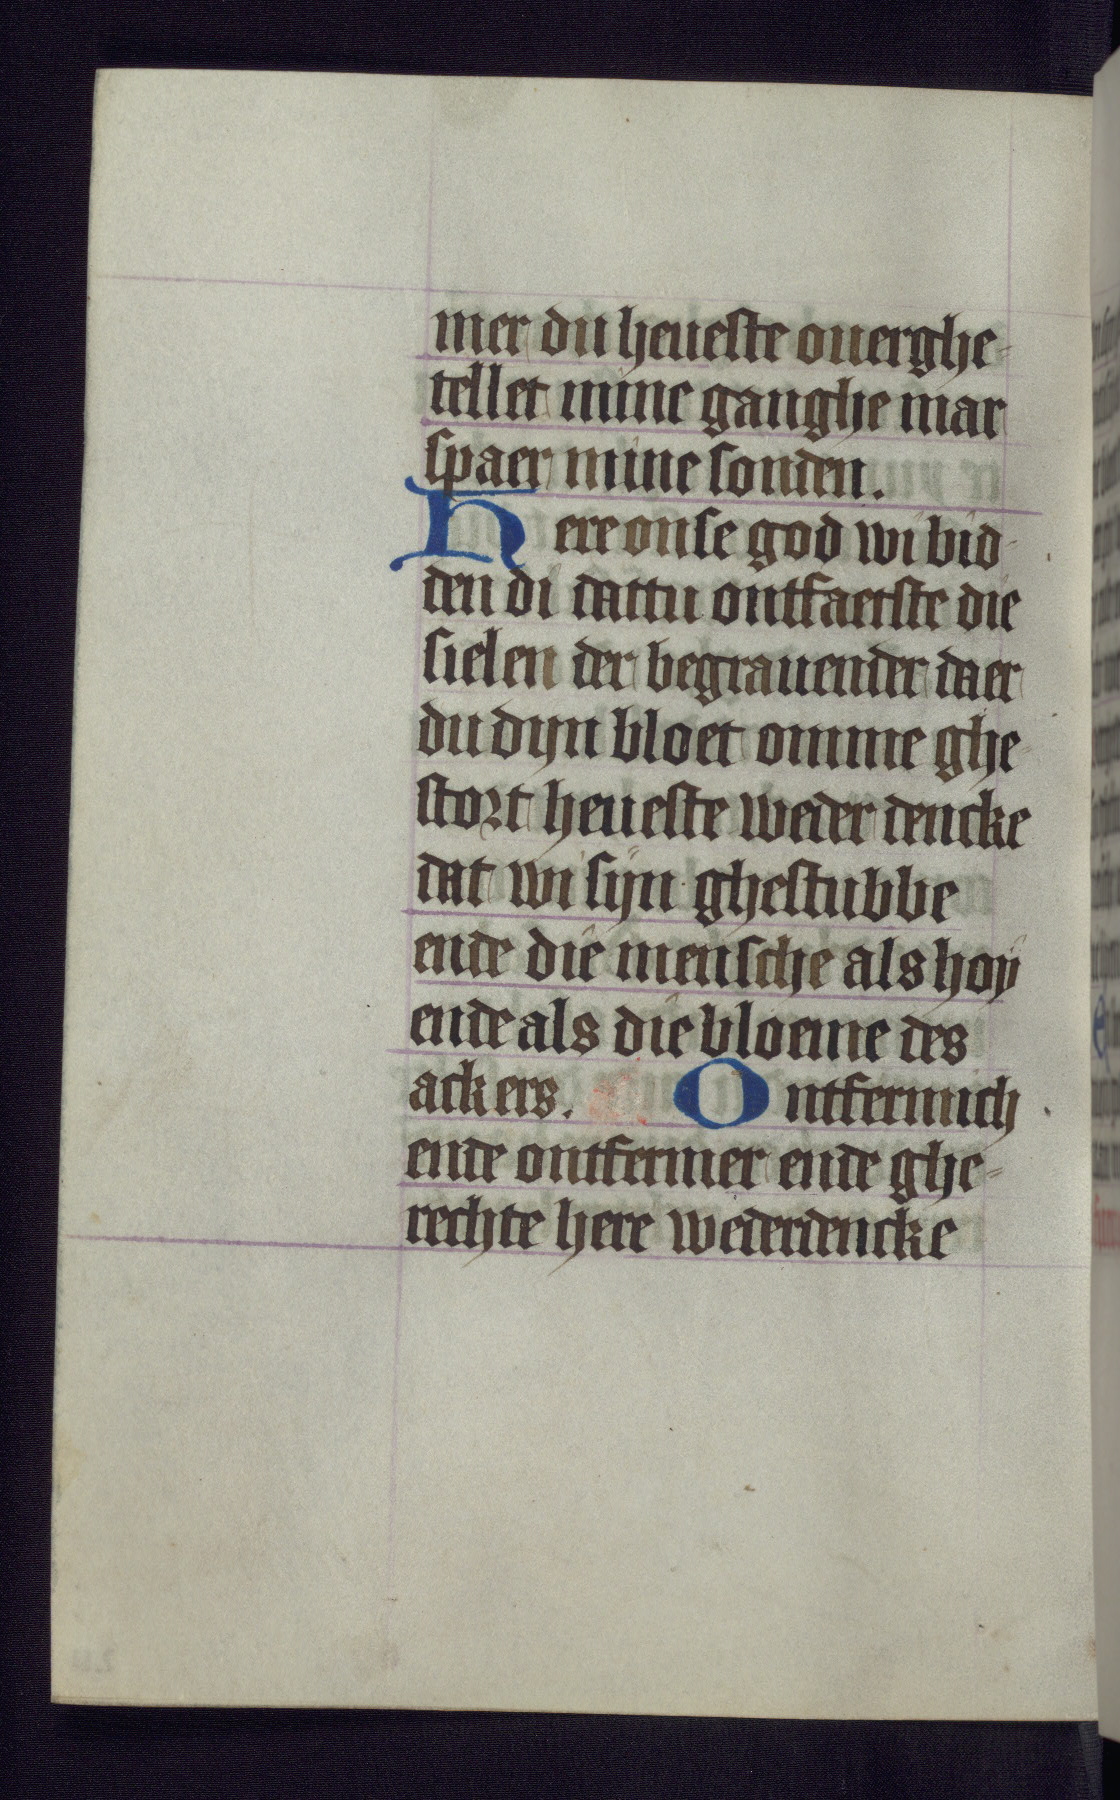 mer du heueste ouerghe-
tellet mine ganghe mar
spaer mine sonden.
Here onse god wi bid-
den di dattu ontfaetste die
sielen der begrauender daer
du dyn bloet omme ghe-
stort heueste weder dencke
dat wi syn ghestubbe
ende die mensche als hoy
ende als die bloeme des
ackers. Ontfermich
ende ontfermer ende ghe-
rechte here wederdencke